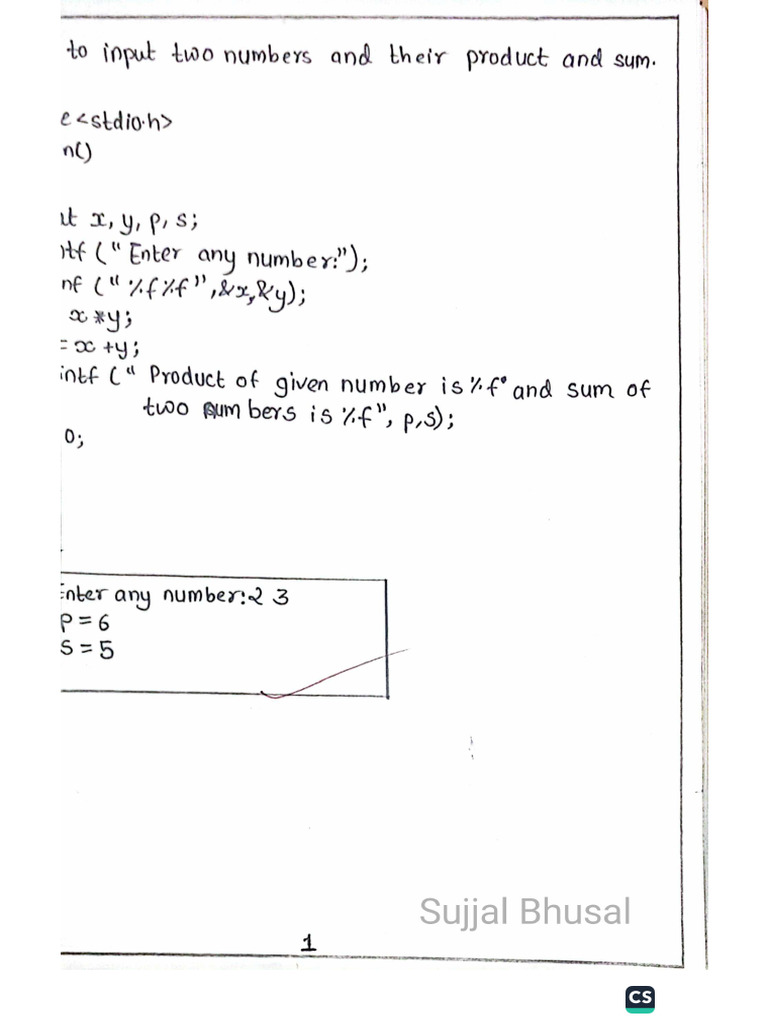 to input two numbers and their product and sum.
e <stdio.h>
n()
at x, y, p, s;
ntf ("Enter any number:");
nf ("%f%f",&x,&y);
x *y;
= x +y;
intf (" Product of given number is %f and sum of
two numbers is %f", p,s);
0;
Enter any number:2 3
p = 6
S = 5
Sujjal Bhusal
1
CS